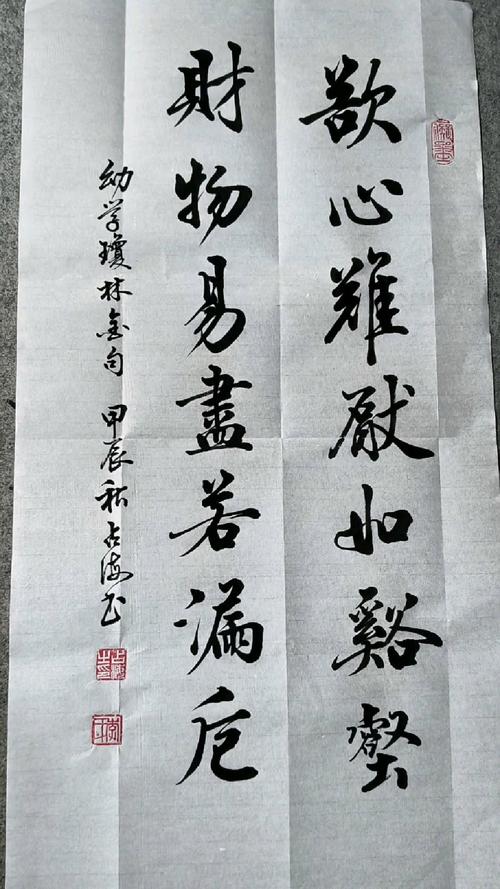 欲心難厭如谿壑
財物易盡若漏卮
幼学瓊林金句 甲辰秋占海书